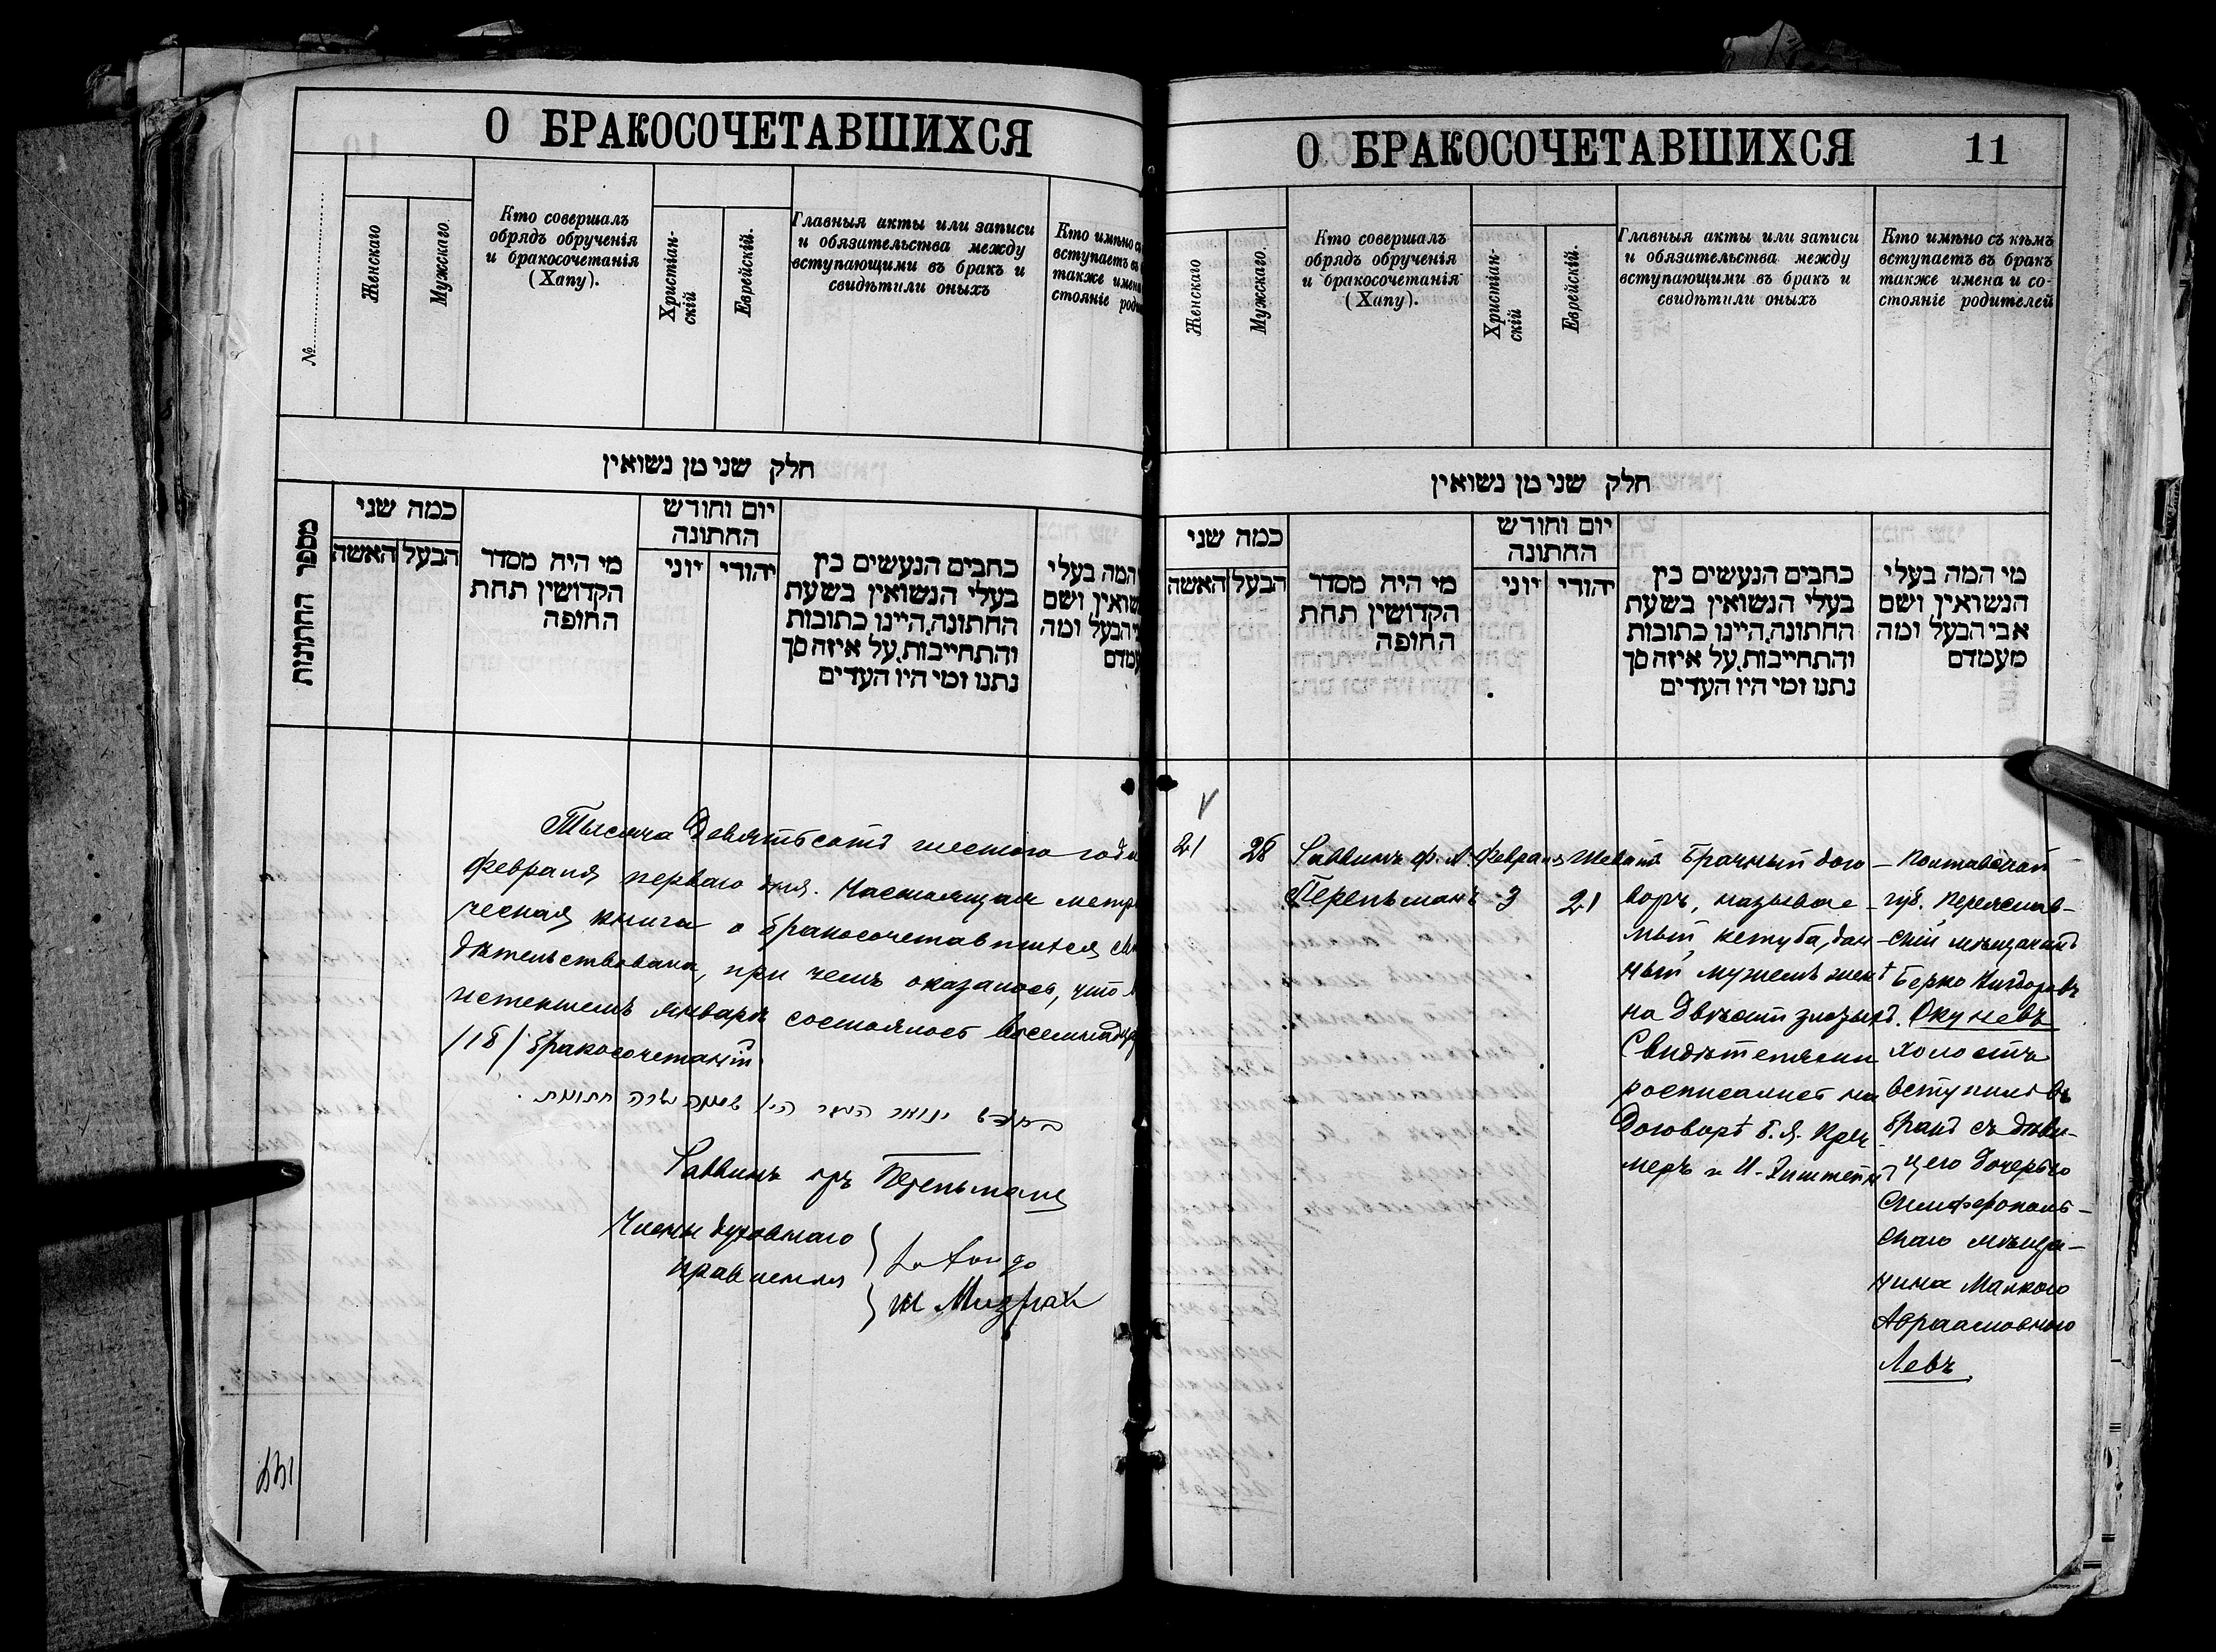 О БРАКОСОЧЕТАВШИХСЯ
№
Женскаго
Мужскаго
Кто совершалъ
обрядъ обрученія
и бракосочетанія
(Хапу).
Христіан-
скій
Еврейскій.
Главныя акты или записи
и обязательства между
вступающими въ бракъ и
свидѣтили оныхъ
Кто имѣно съ
вступаетъ въ
также имена
стояніе роди
חלק שני מן נשואין
מספר החתונות
כמה שני
האשה הבעל
מי היה מסדר
הקדושין תחת
החופה
יום וחודש
החתונה
יוני יהודי
כתבים הנעשים בין
בעלי הנשואין בשעת
החתונה, היינו כתובות
והתחייבות, על איזה סך
נתנו ומי היו העדים
המה בעלי
שואין ושם
י הבעל ומה
עמדם
Тысяча девятьсотъ шестого года
февраля перваго дня. Настоящая метри
ческая книга о бракосочетавшихся сви
дѣтельствована, при чемъ оказалось, что в
истекшемъ январѣ состоялось восемнадца
/18/ бракосочетаній.
Раввинъ Перельманъ
Члены духовнаго
правленія
М Мизрах
О БРАКОСОЧЕТАВШИХСЯ 11
Женскаго
Мужскаго.
Кто совершалъ
обрядъ обрученія
и бракосочетанія
(Хапу).
Христіан-
скій
Еврейскій.
Главныя акты или записи
и обязательства между
вступающими въ бракъ и
свидѣтили оныхъ
Кто имѣно съ кѣмъ
вступаетъ въ бракъ
также имена и со-
стояніе родителей
חלק שני מן נשואין
כמה שני
האשה הבעל
מי היה מסדר
הקדושין תחת
החופה
יום וחודש
החתונה
יוני יהודי
כתבים הנעשים בין
בעלי הנשואין בשעת
החתונה, היינו כתובות
והתחייבות, על איזה סך
נתנו ומי היו העדים
מי המה בעלי
הנשואין ושם
אבי הבעל ומה
מעמדם
21
28
Раввинъ Ф. Л.
Перельманъ
Февраля
3
Шеватъ
21
Брачный дого
воръ, называе-
мый кетуба, дан-
ный мужемъ женѣ
на двѣсти злотыхъ.
Свидѣтелями
росписались на
договорѣ Б. Я. Кре
меръ и И.
Полтавской
губ. Переяслав-
скій мѣщанинъ
Берко
Окуневъ
холостъ
вступилъ въ
бракъ съ дѣви-
цею дочерью
Симферополь-
скаго мѣща-
нина Малкою
Абраамовною
Левъ.